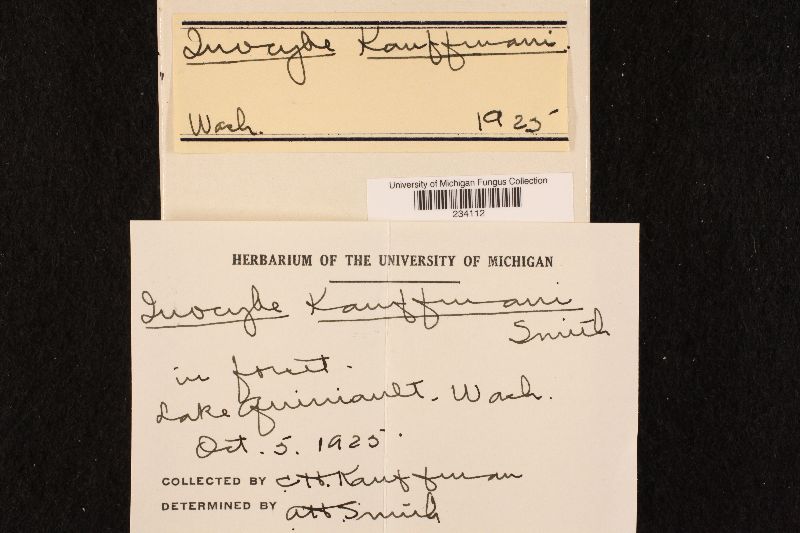 Inocybe Kauffmani.
Wash. 1925
University of Michigan Fungus Collection
234112
HERBARIUM OF THE UNIVERSITY OF MICHIGAN
Inocybe Kauffmani
Smith
in forest.
Lake Quiniault, Wash.
Oct. 5. 1925.
COLLECTED BY C.H. Kauffman
DETERMINED BY A.H. Smith